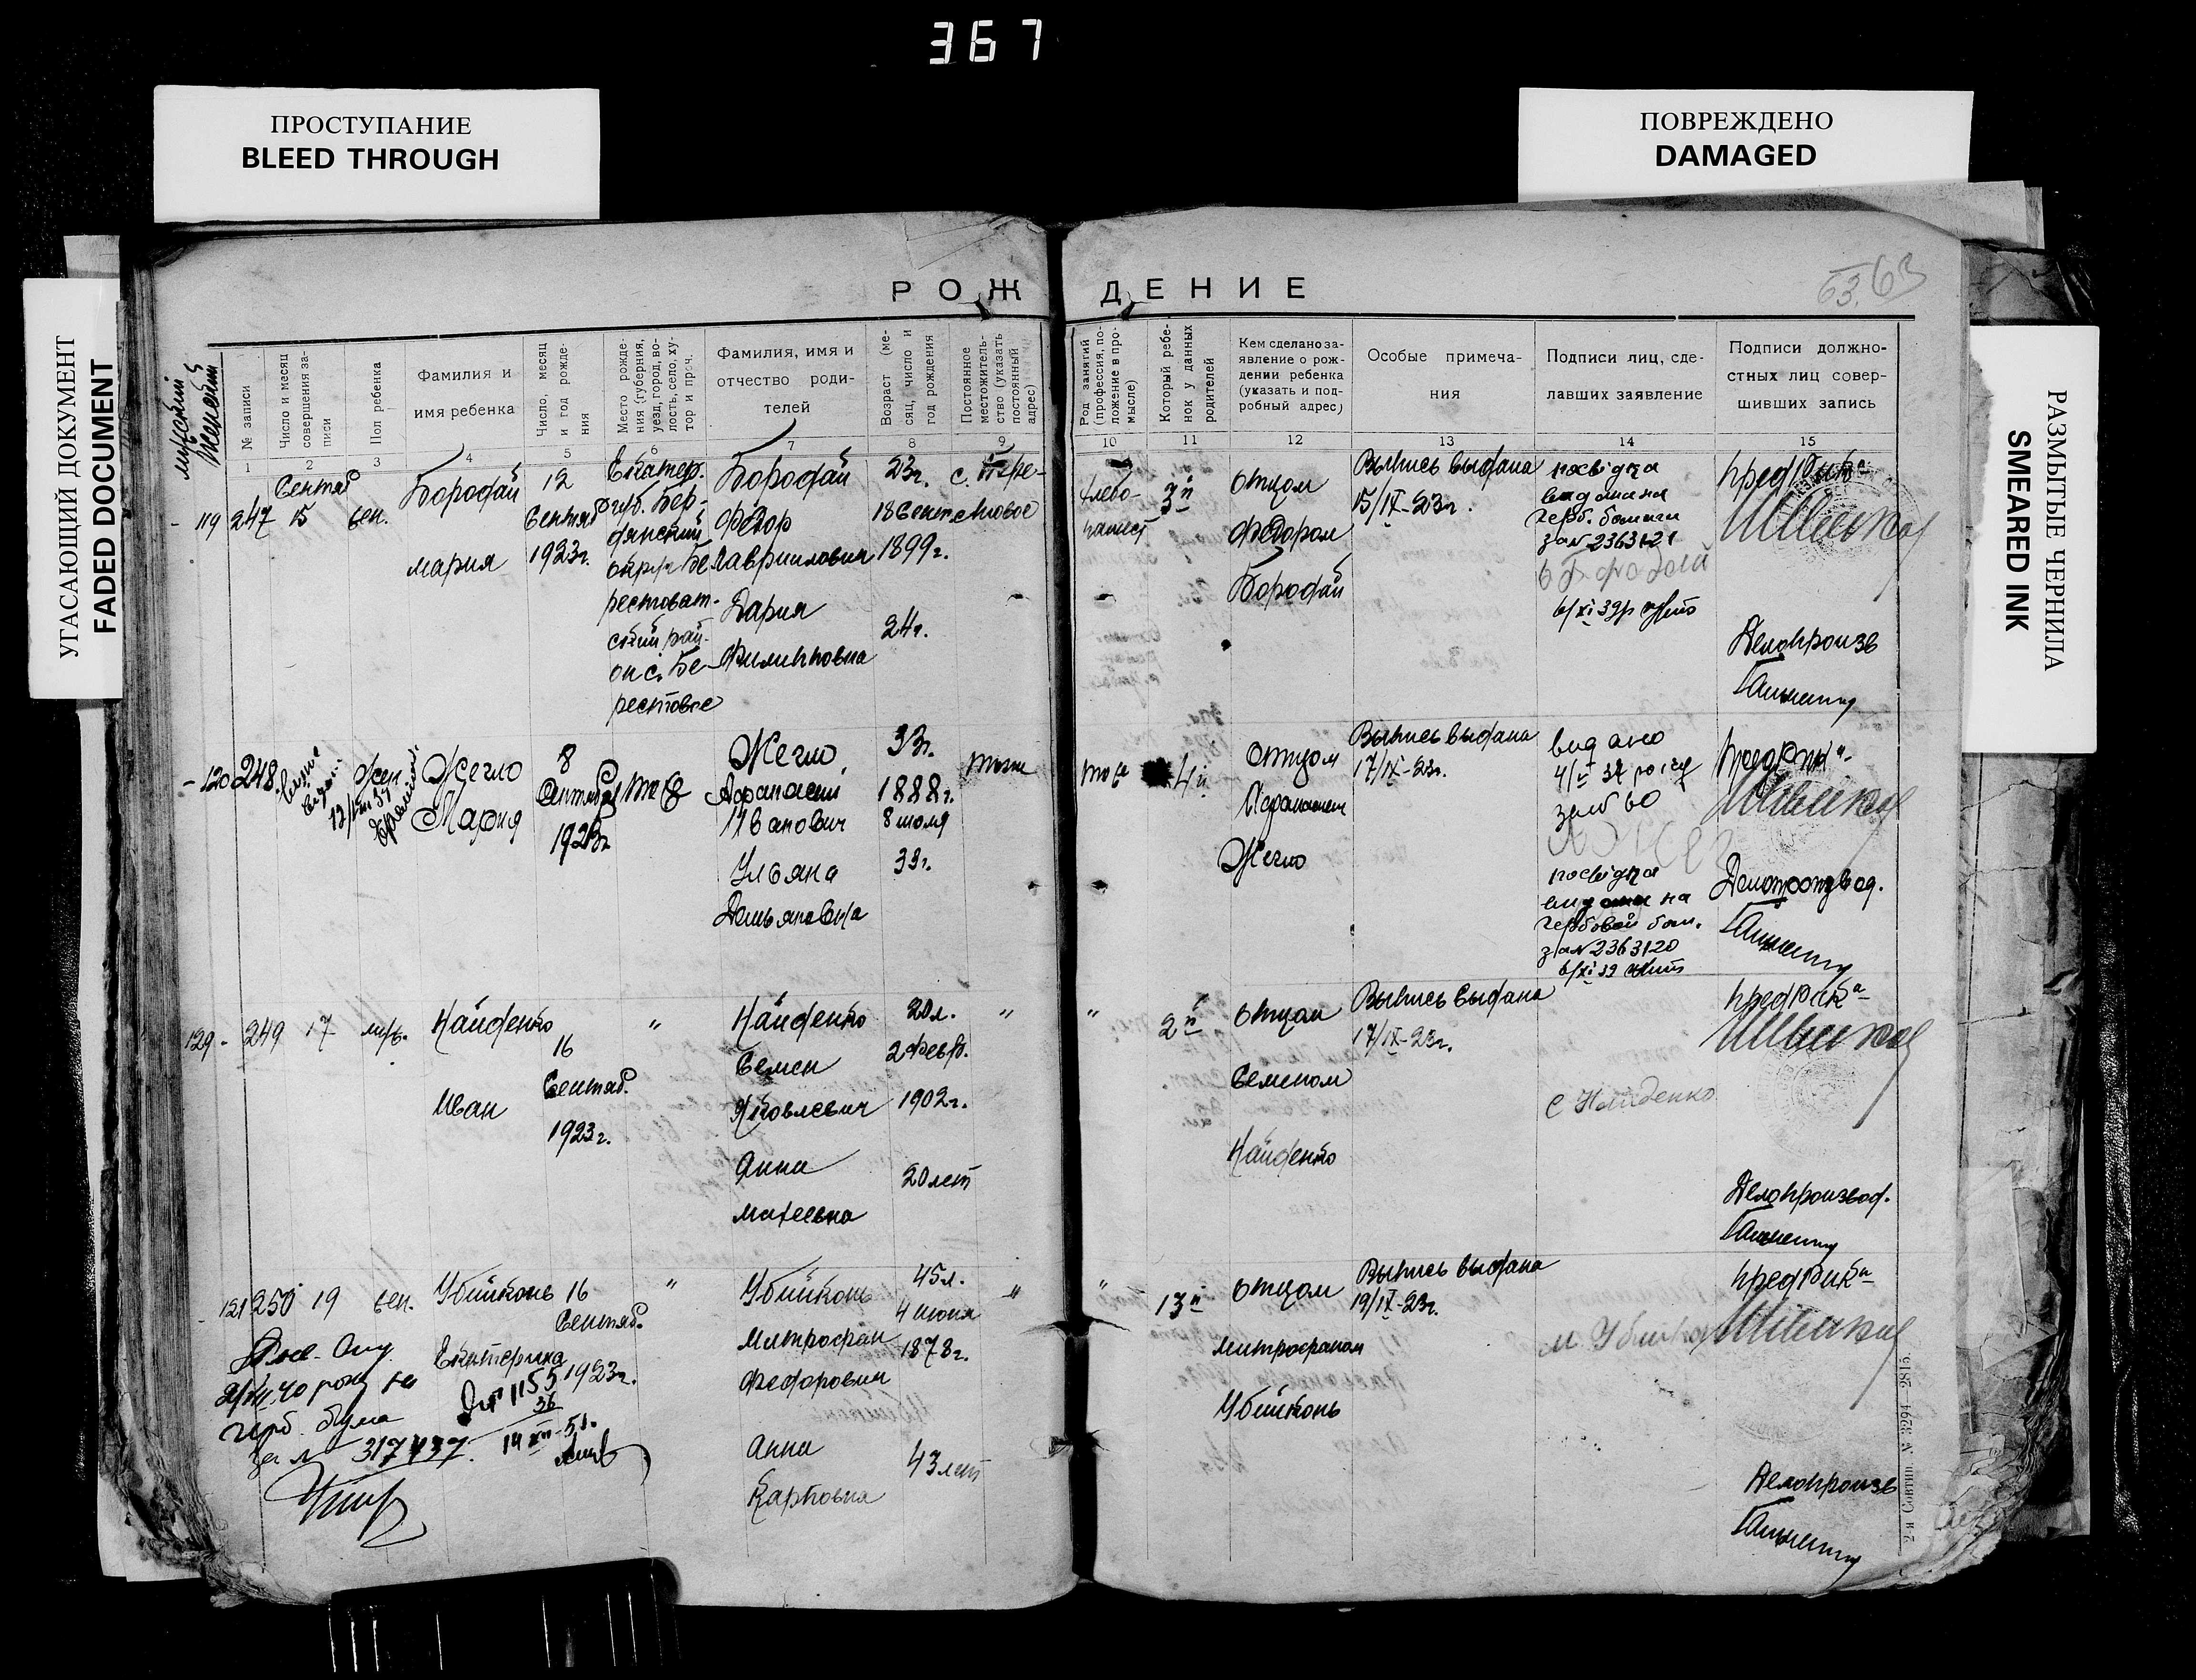 367
ПРОСТУПАНИЕ
BLEED THROUGH
ПОВРЕЖДЕНО
DAMAGED
УГАСАЮЩИЙ ДОКУМЕНТ
FADED DOCUMENT
РАЗМЫТЫЕ ЧЕРНИЛА
SMEARED INK
РОЖДЕНИЕ
53. 63
мужской
женский
№ записи
Число и месяц совершения записи
Пол ребенка
Фамилия и
имя ребенка
Число, месяц и год рождения
Место рождения (губерния, уезд, город, волость, село, хутор и проч.
Фамилия, имя и
отчество роди-
телей
Возраст (месяц, число и год рождения
Постоянное местожительство (указать постоянный адрес)
Род занятий (профессия, положение в промысле)
Который ребенок у данных родителей
Кем сделано за-
явление о рож-
дении ребенка
(указать и под-
робный адрес)
Особые примеча-
ния
Подписи лиц, сде-
лавших заявление
Подписи должно-
стных лиц совер-
шивших запись
1 2 3 4 5 6 7 8 9 10 11 12 13 14 15
119 247
Сентяб
15
жен.
Бородай
Мария
12
Сентяб
1923г.
Екатер.
губ. Бер-
дянский
округ Бе
рестоват-
ский рай-
он с. Бе-
рестовое
Бородай
Федор
Гавриилович
Дария
Филипповна
23г.
18 Сент.
1899г.
24г.
с. Бере-
стовое
хлебо-
пашест
3й
отцом
Федором
Бородай
Выпись выдана
15/IX-23г.
посвідка
видана на
герб. бомаги
за№ 2363121
6/XI 39р
предРика
Делопроизв
120 248
12/VIII 37
жен.
Жегло
Мария
8
Сентября
1923г.
тоже
Жегло
Афанасий
Иванович
Ульяна
Демьяновна
33г.
1888г.
8 июля
33г.
тоже
тоже
4й
отцом
Афанасием
Жегло
Выпись выдана
17/IX-23г.
видано
посвідка
видана на
гербовой бом.
за№ 2363120
6/XI 39
предРика
Делопроизвод.
129 - 249 17 муж.
Найденко
Иван
16
Сентяб.
1923г.
"
Найденко
Семен
Яковлевич
Анна
Матеевна
20л.
2 Февр.
1902г.
20 лет
"
"
2й
отцом
Семеном
Найденко
Выпись выдана
17/IX-23г.
С Найденко
предРика
Делопроизвод.
121 250 19 жен.
Убийконь
Екатерина
16
Сентяб.
1923г.
"
Убийконь
Митрофан
Федорович
Анна
Карповна
45л.
4 июня
1878г.
43 лет
"
"
13й
отцом
Митрофаном
Убийконь
Выпись выдана
19/IX-23г.
М Убийко
предРика
Делопроизв
40 року на
герб. бума
за № 317437.
1155
36
14 XII-51.